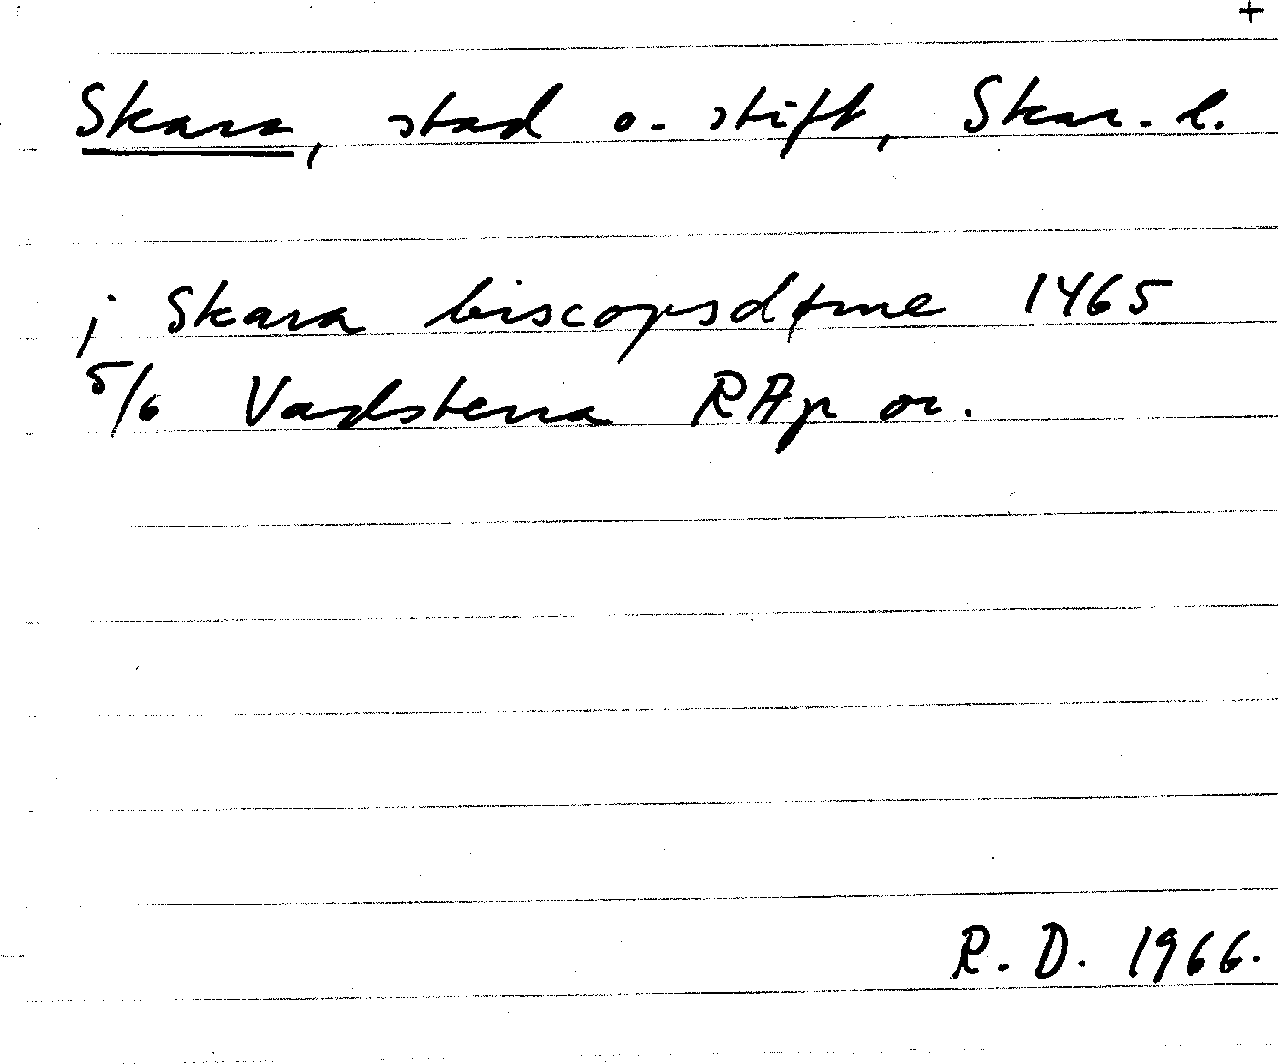 +
Skara, stad o. stift, Skar. l.
j Skara biscopsdøme 1465
5/6 Vadstena RAp or.
R. D. 1966.